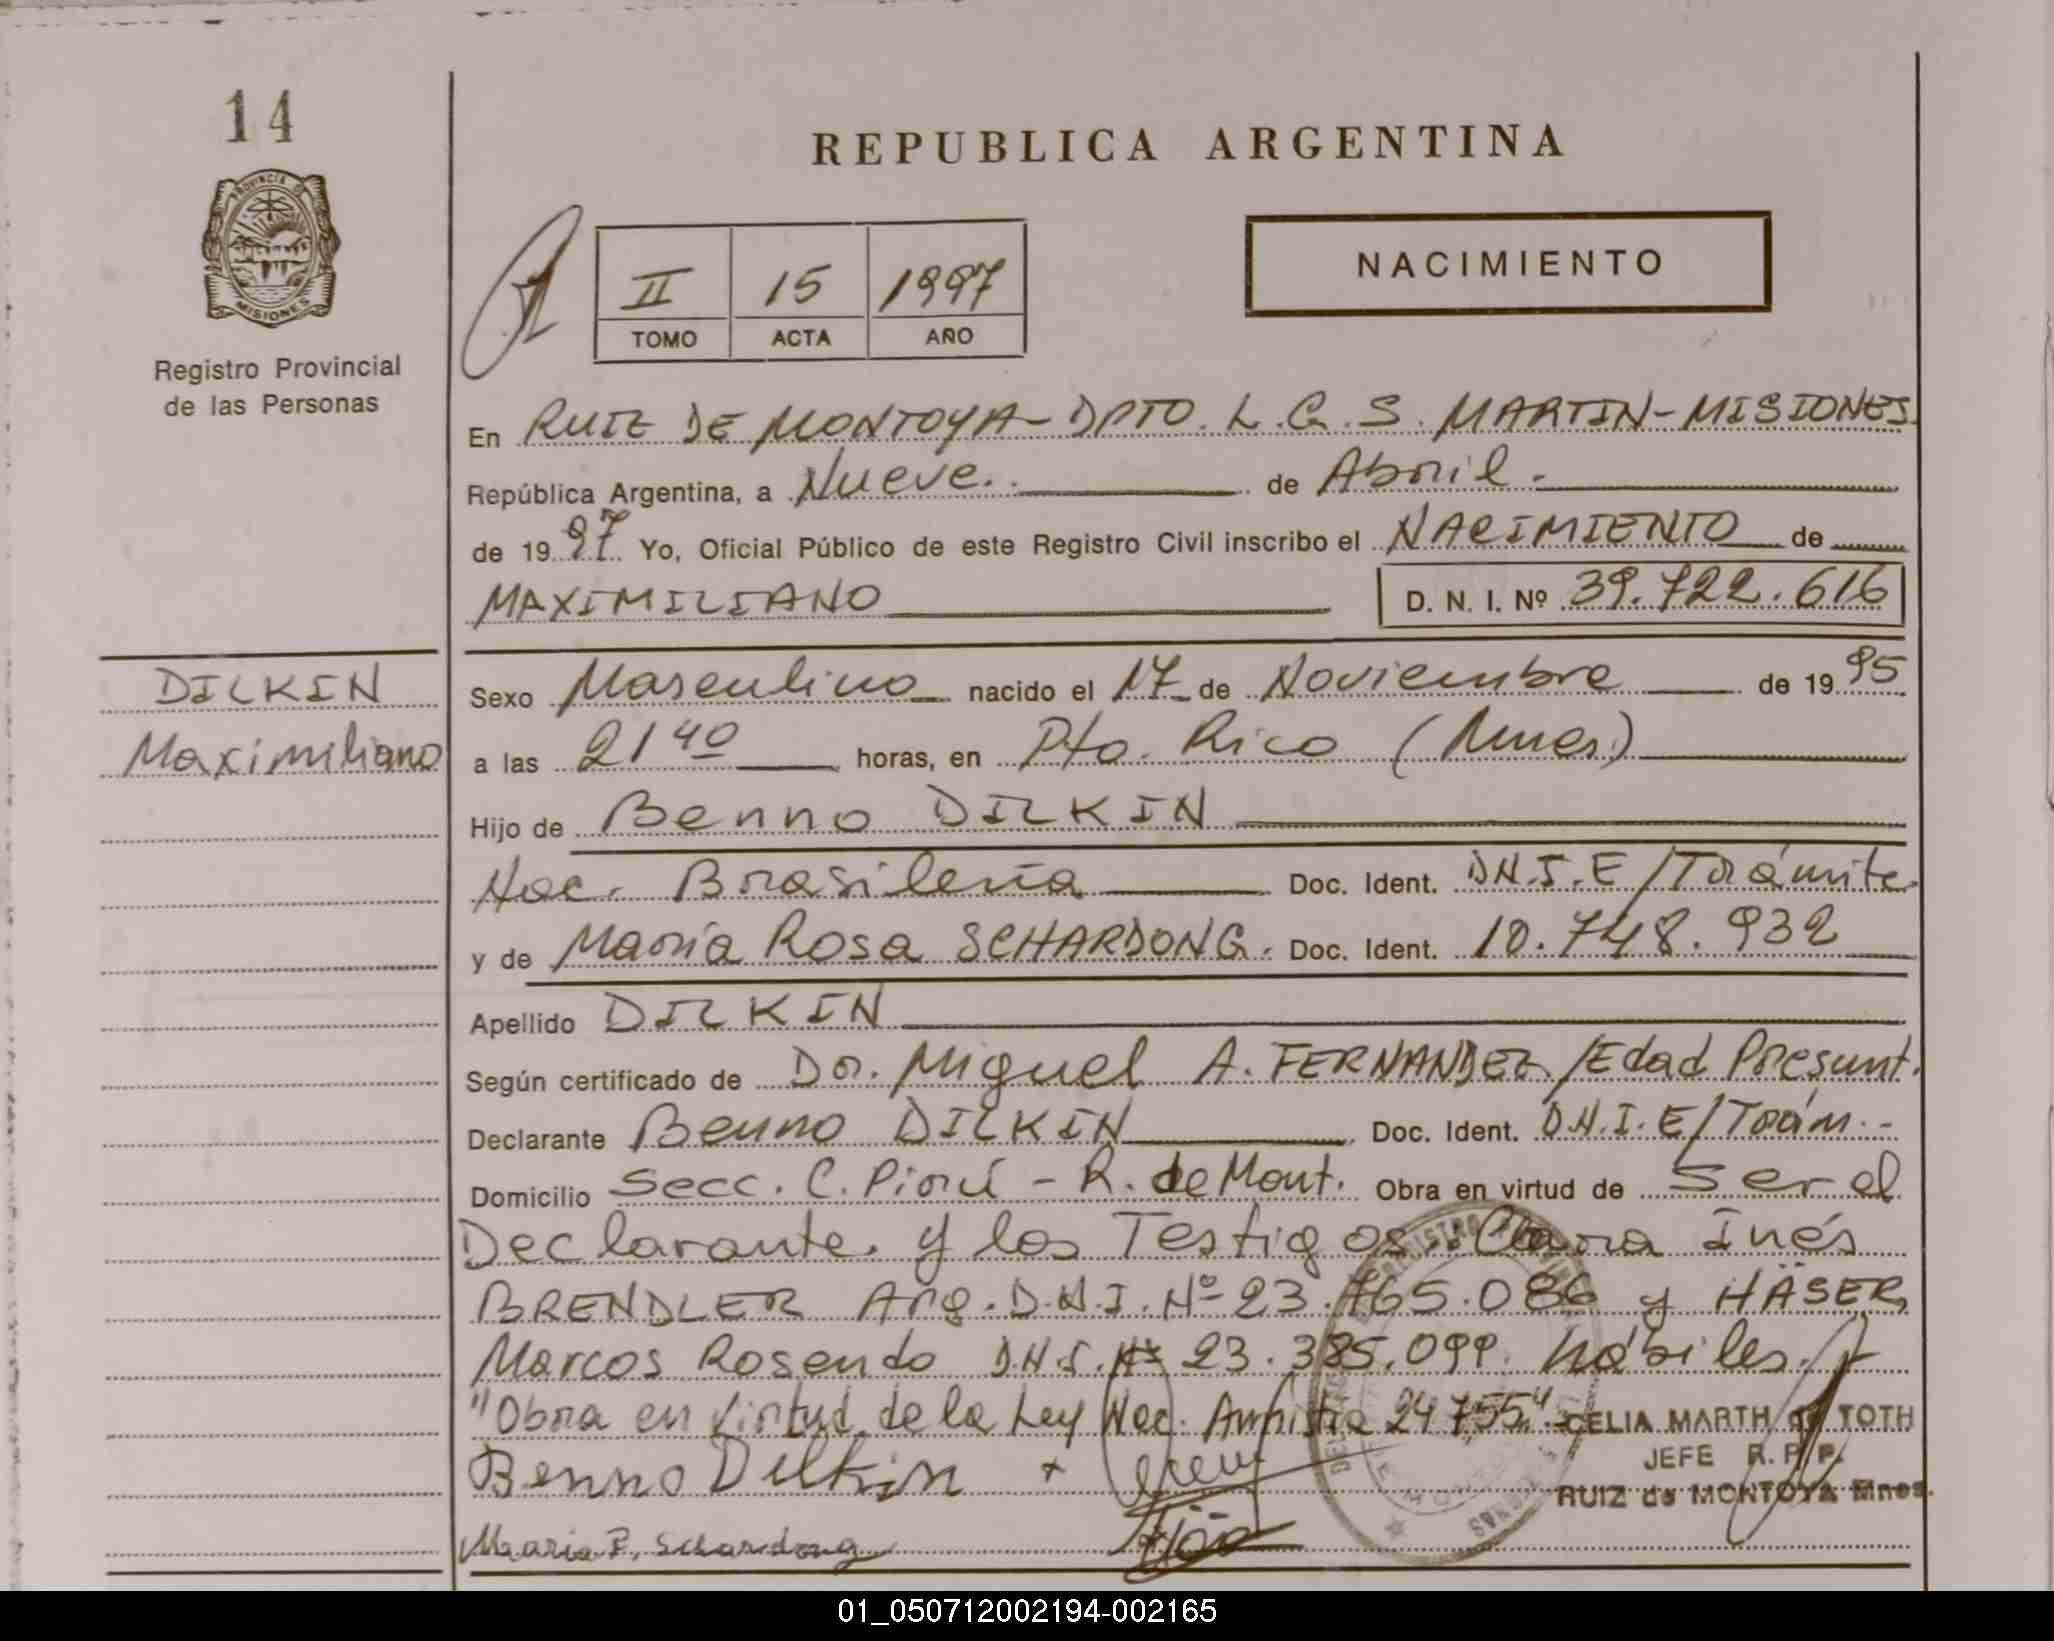 14
PROVINCIA DE
MISIONES
Registro Provincial
de las Personas
DILKIN
Maximiliano
REPUBLICA ARGENTINA
II 15 1997
TOMO ACTA AÑO
NACIMIENTO
En RUIZ DE MONTOYA - DPTO. L.G.S. MARTIN - MISIONES.
República Argentina, a Nueve. de Abril.
de 1997 Yo, Oficial Público de este Registro Civil inscribo el NACIMIENTO de
MAXIMILIANO D. N. I. Nº 39.722.616
Sexo Masculino nacido el 17 de Noviembre de 1995
a las 21 40 horas, en Pto. Rico (Mnes.)
Hijo de Benno DILKIN
Nac. Brasileña Doc. Ident. D.N.I.E/Trámite.
y de María Rosa SCHARDONG. Doc. Ident. 10.748.932
Apellido DILKIN
Según certificado de Dr. Miguel A. FERNANDEZ /Edad Presunt.
Declarante Benno DILKIN Doc. Ident. D.N.I.E/Trám.-
Domicilio Secc. C. Pirú - R. de Mont. Obra en virtud de Ser el
Declarante. y los Testigos: Clara Inés
BRENDLER Arg. D.N.I. Nº 23.765.086 y HÄSER,
Marcos Rosendo D.N.I. Nº 23.385.099. hábiles.
"Obra en Virtud de la Ley Nac. Amnistía 24.755"
CELIA MARTH de TOTH
JEFE R. P. P.
RUIZ de MONTOYA Mnes.
Benno Dilkin
Maria R. Schardong
01_050712002194-002165